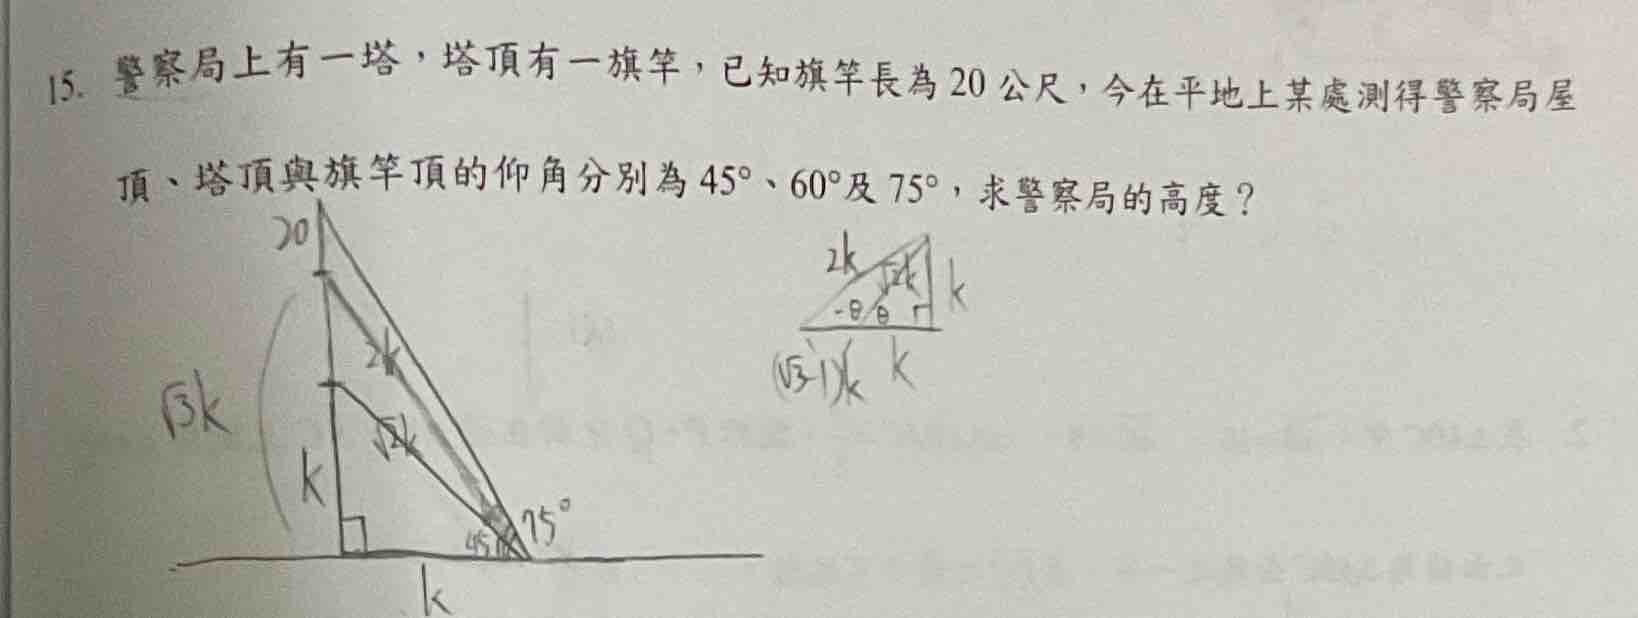 15. 警察局上有一塔，塔頂有一旗竿，已知旗竿長為 20 公尺，今在平地上某處測得警察局屋
頂、塔頂與旗竿頂的仰角分別為 45°、60°及 75°，求警察局的高度？
20
2k
√2k
k
-θ
θ
(√3-1)k
k
√3k
2k
√2k
k
45
75°
k